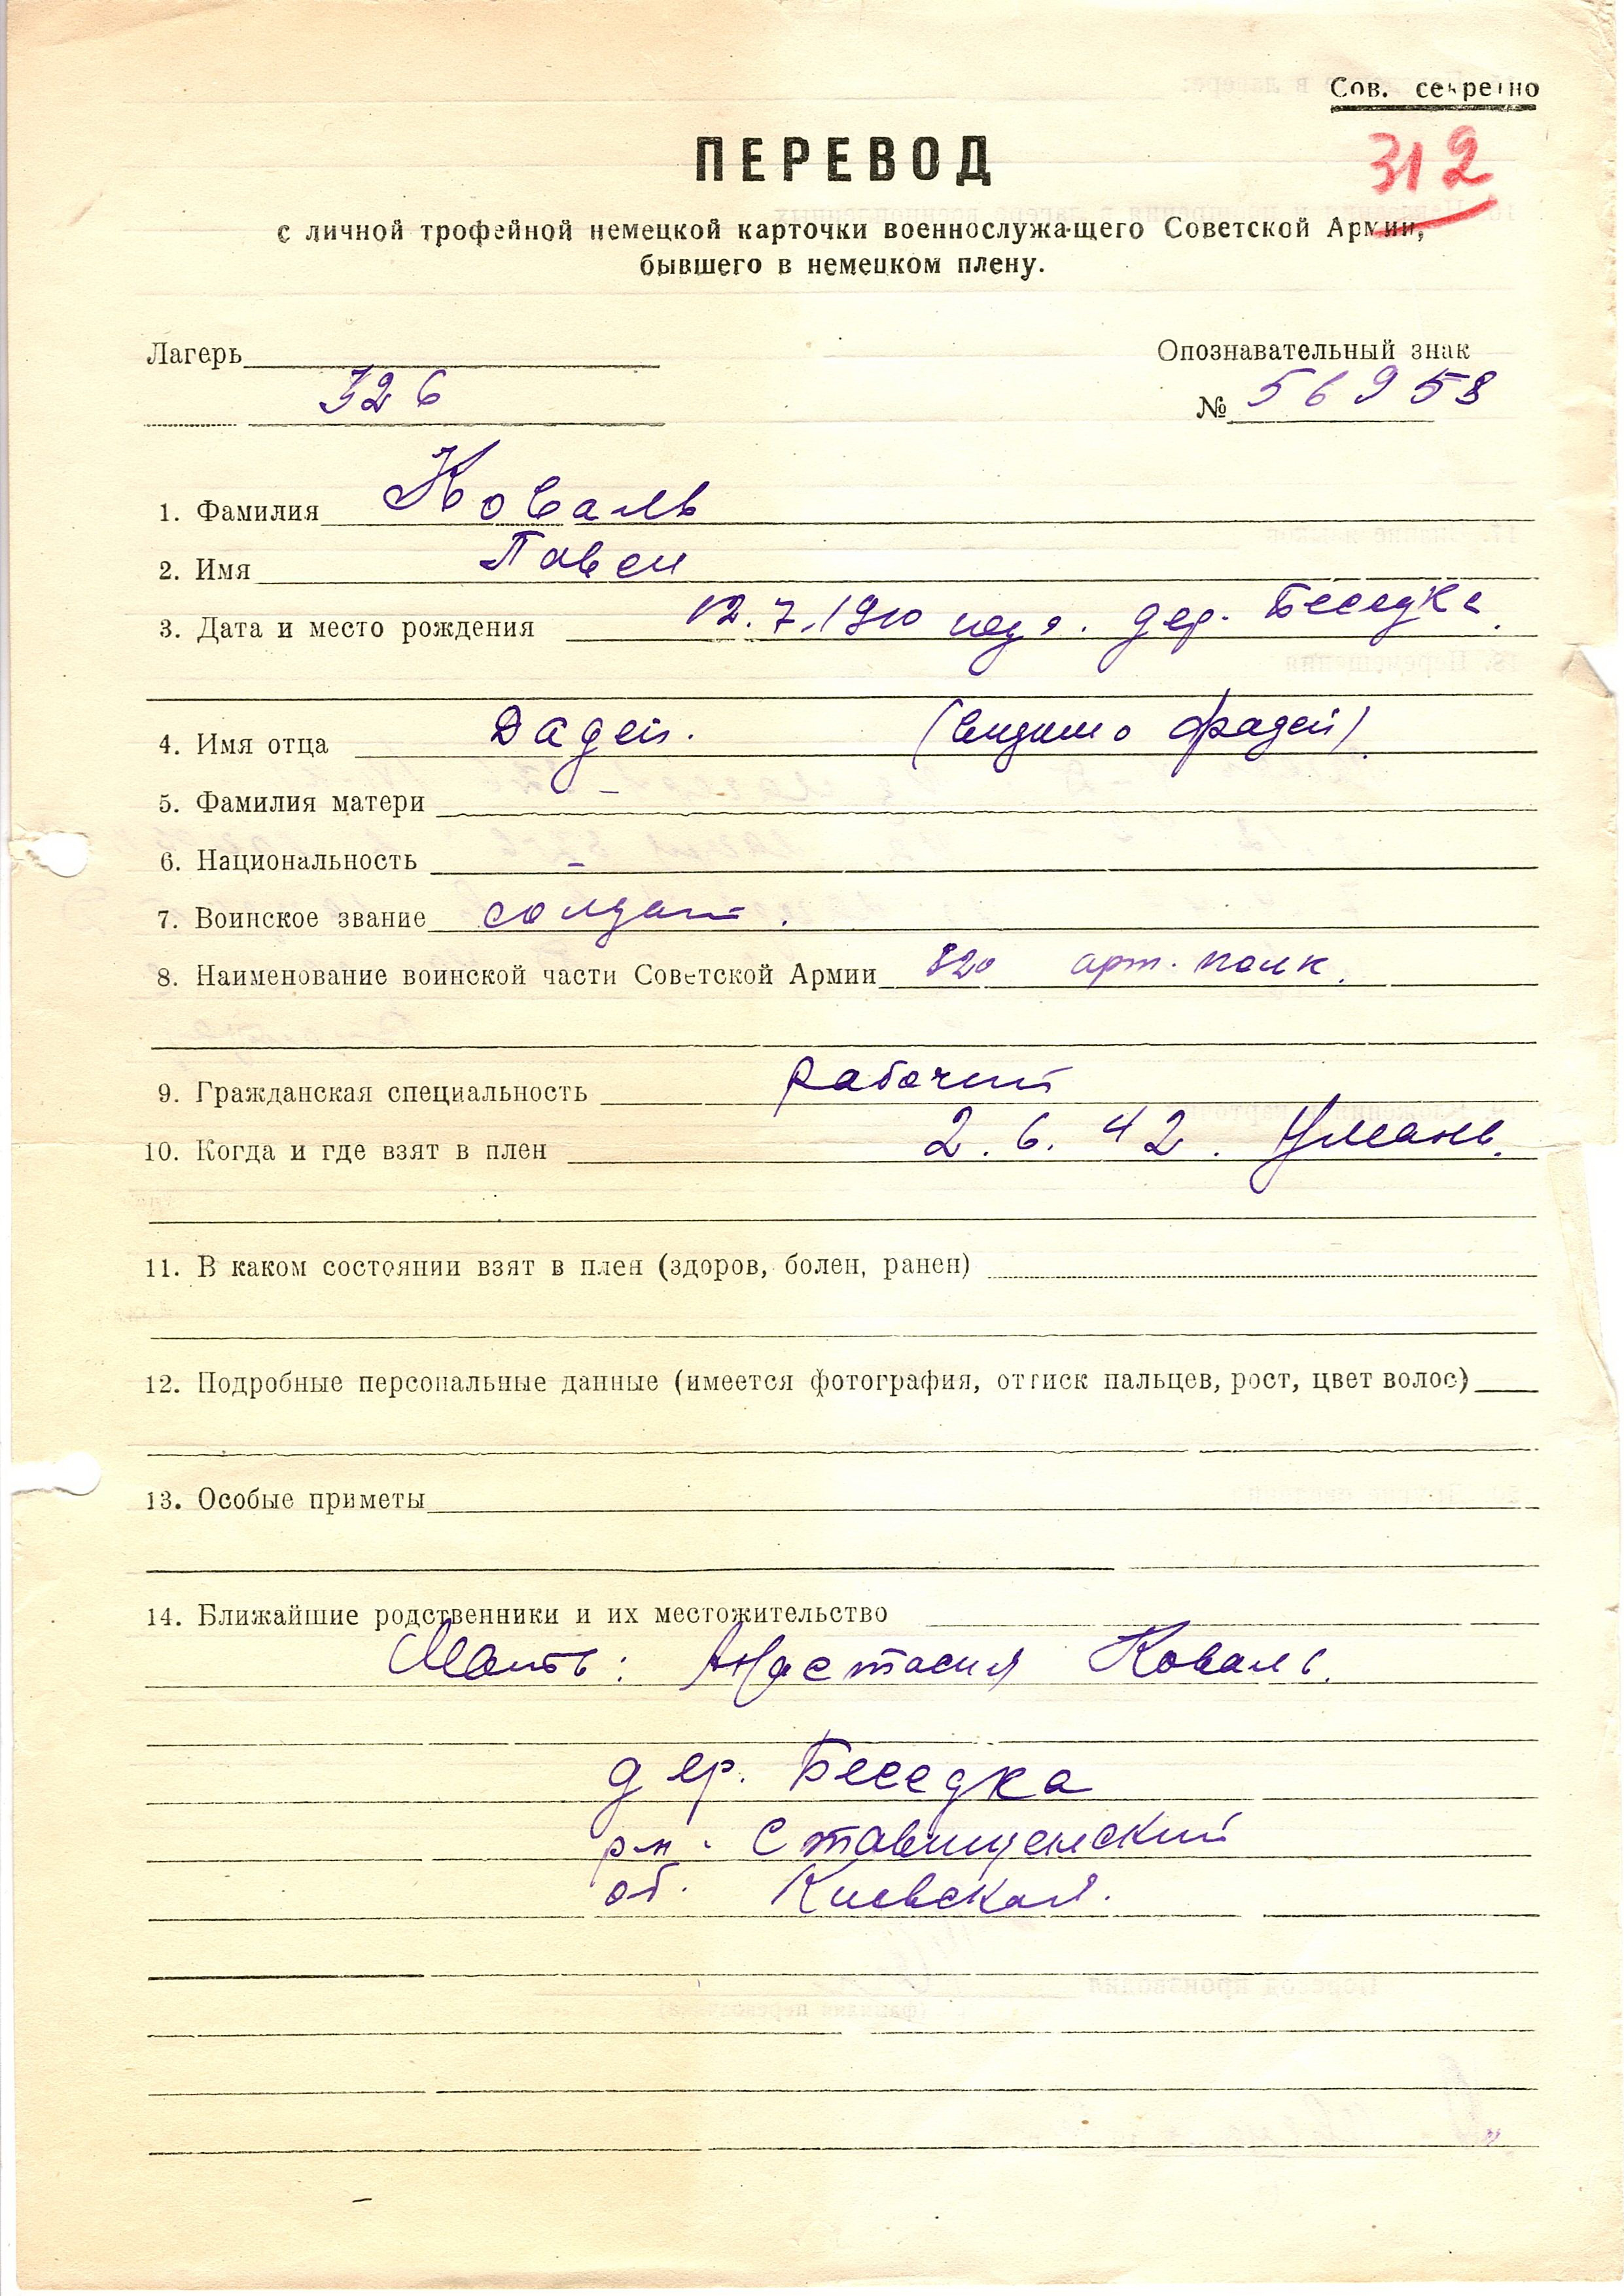 Сов. секретно
312
ПЕРЕВОД
с личной трофейной немецкой карточки военнослужащего Советской Армии,
бывшего в немецком плену.
Лагерь
326
Опознавательный знак
№ 56958
1. Фамилия Коваль
2. Имя Павел
3. Дата и место рождения 12.7.1910 года. дер. Беседка.
4. Имя отца Дадей. (видимо Фадей).
5. Фамилия матери –
6. Национальность –
7. Воинское звание солдат.
8. Наименование воинской части Советской Армии 820 арт. полк.
9. Гражданская специальность рабочий
10. Когда и где взят в плен 2.6.42. Умань.
11. В каком состоянии взят в плен (здоров, болен, ранен)
12. Подробные персональные данные (имеется фотография, оттиск пальцев, рост, цвет волос)
13. Особые приметы
14. Ближайшие родственники и их местожительство
Мать: Анастасия Коваль.
дер. Беседка
рн. Ставищенский
об. Киевская.